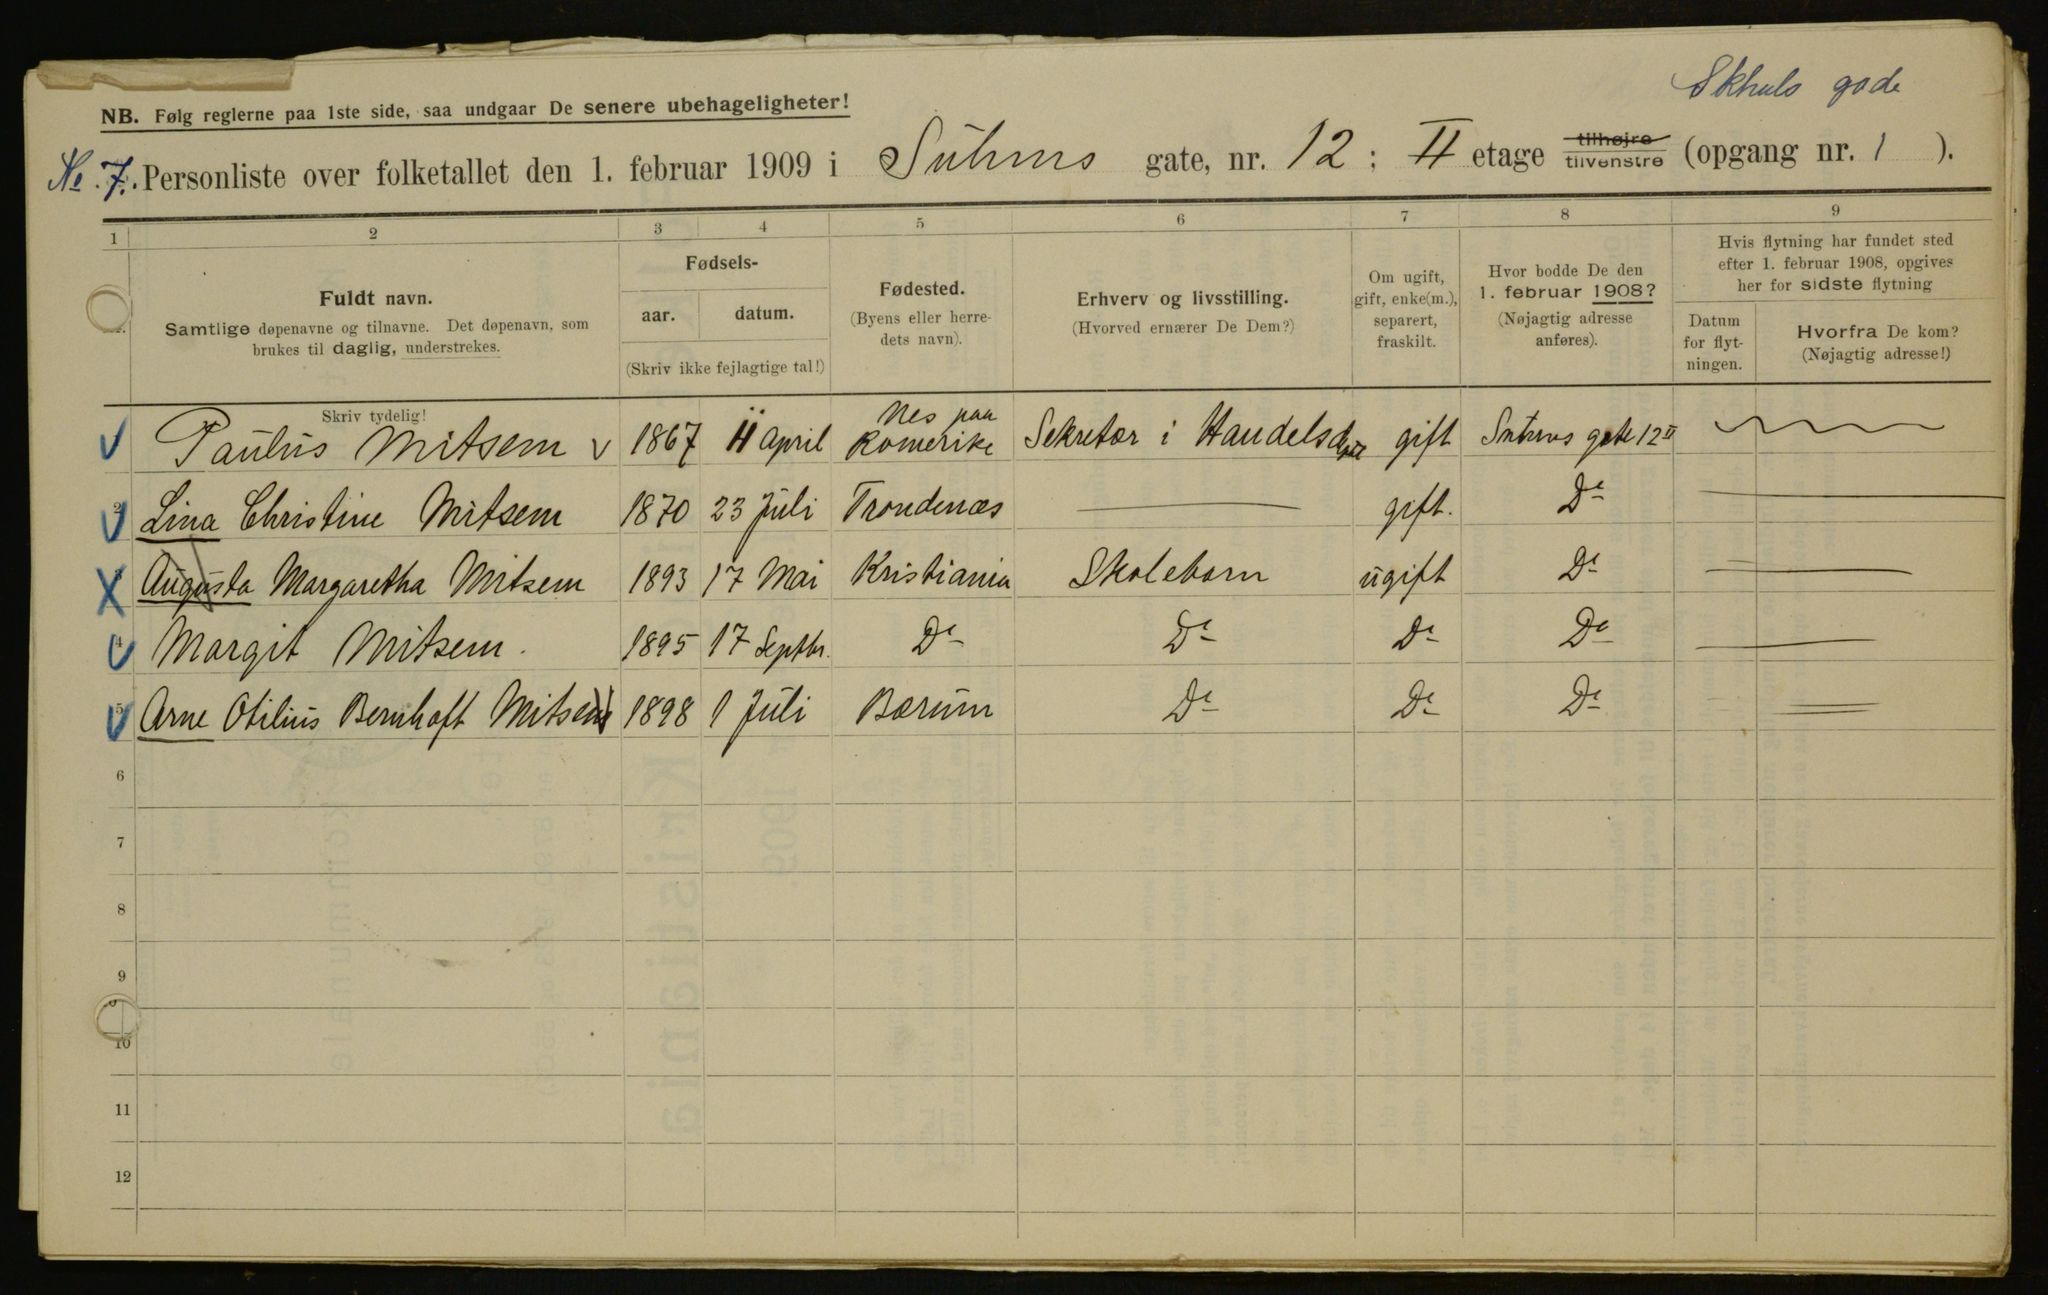 Skhuls gade
NB. Følg reglerne paa 1ste side, saa undgaar De senere ubehageligheter!
No. 7. Personliste over folketallet den 1. februar 1909 i Suhms gate, nr. 12; II etage tilhøjre tilvenstre (opgang nr. 1 ).
1 2 3 4 5 6 7 8 9
Fuldt navn.
Samtlige døpenavne og tilnavne. Det døpenavn, som
brukes til daglig, understrekes.
Fødsels-
aar. datum.
(Skriv ikke fejlagtige tal!)
Fødested.
(Byens eller herre-
dets navn).
Erhverv og livsstilling.
(Hvorved ernærer De Dem?)
Om ugift,
gift, enke(m.),
separert,
fraskilt.
Hvor bodde De den
1. februar 1908?
(Nøjagtig adresse
anføres).
Hvis flytning har fundet sted
efter 1. februar 1908, opgives
her for sidste flytning
Datum
for flyt-
ningen.
Hvorfra De kom?
(Nøjagtig adresse!)
Skriv tydelig!
Paulus Mitsem 1867 11 April Nes paa Romerike Sekretær i Handelsdept gift Suhms gate 12 II
2 Lina Christine Mitsem 1870 23 Juli Trondenæs gift. Do
Augusta Margaretha Mitsem 1893 17 Mai Kristiania Skolebarn ugift Do
4 Margit Mitsem. 1895 17 Septbr. Do Do Do Do
5 Arne Otilius Bernhoft Mitsem 1898 1 Juli Bærum Do Do Do
6
7
8
9
10
11
12